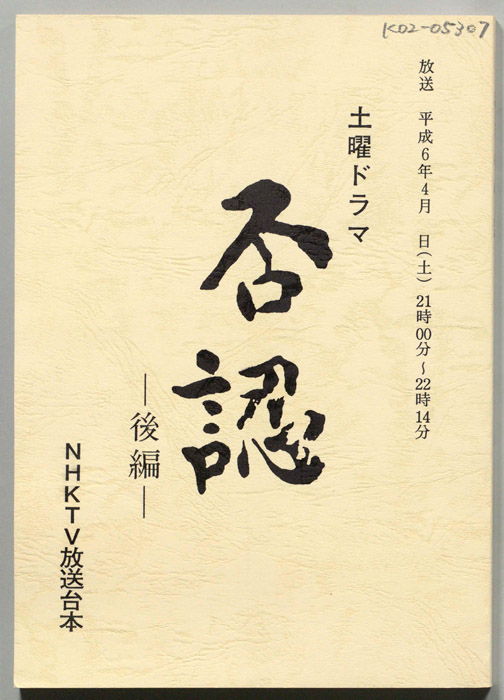 K02-05307
放送 平成6年4月 日(土) 21時00分~22時14分
土曜ドラマ
否認
―後編―
NHKTV放送台本